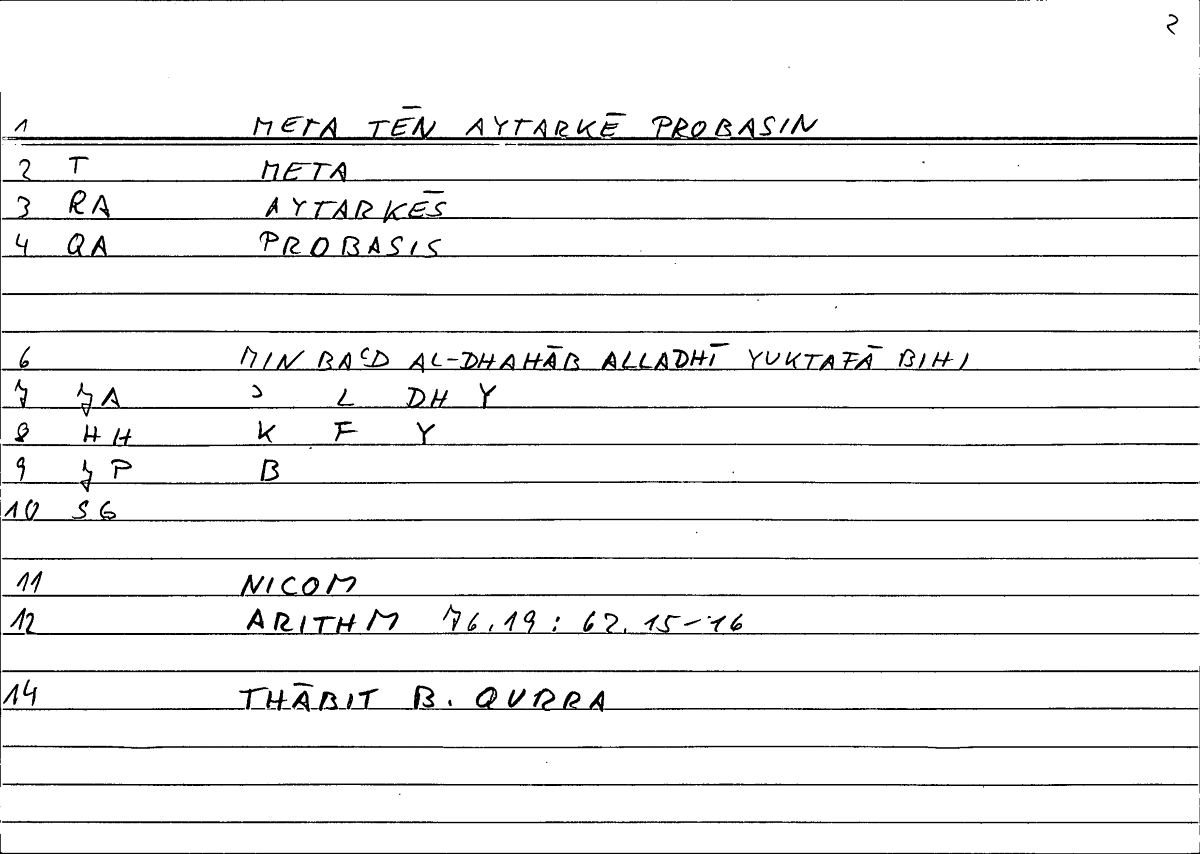 2
1 META TĒN AYTARKĒ PROBASIN
2 T META
3 RA AYTARKĒS
4 QA PROBASIS
6 MIN BAᶜD AL-DHAHĀB ALLADHĪ YUKTAFĀ BIHI
7 JA ɔ L DH Y
8 HH K F Y
9 JP B
10 SG
11 NICOM
12 ARITHM 76.19 : 62.15-16
14 THĀBIT B. QURRA